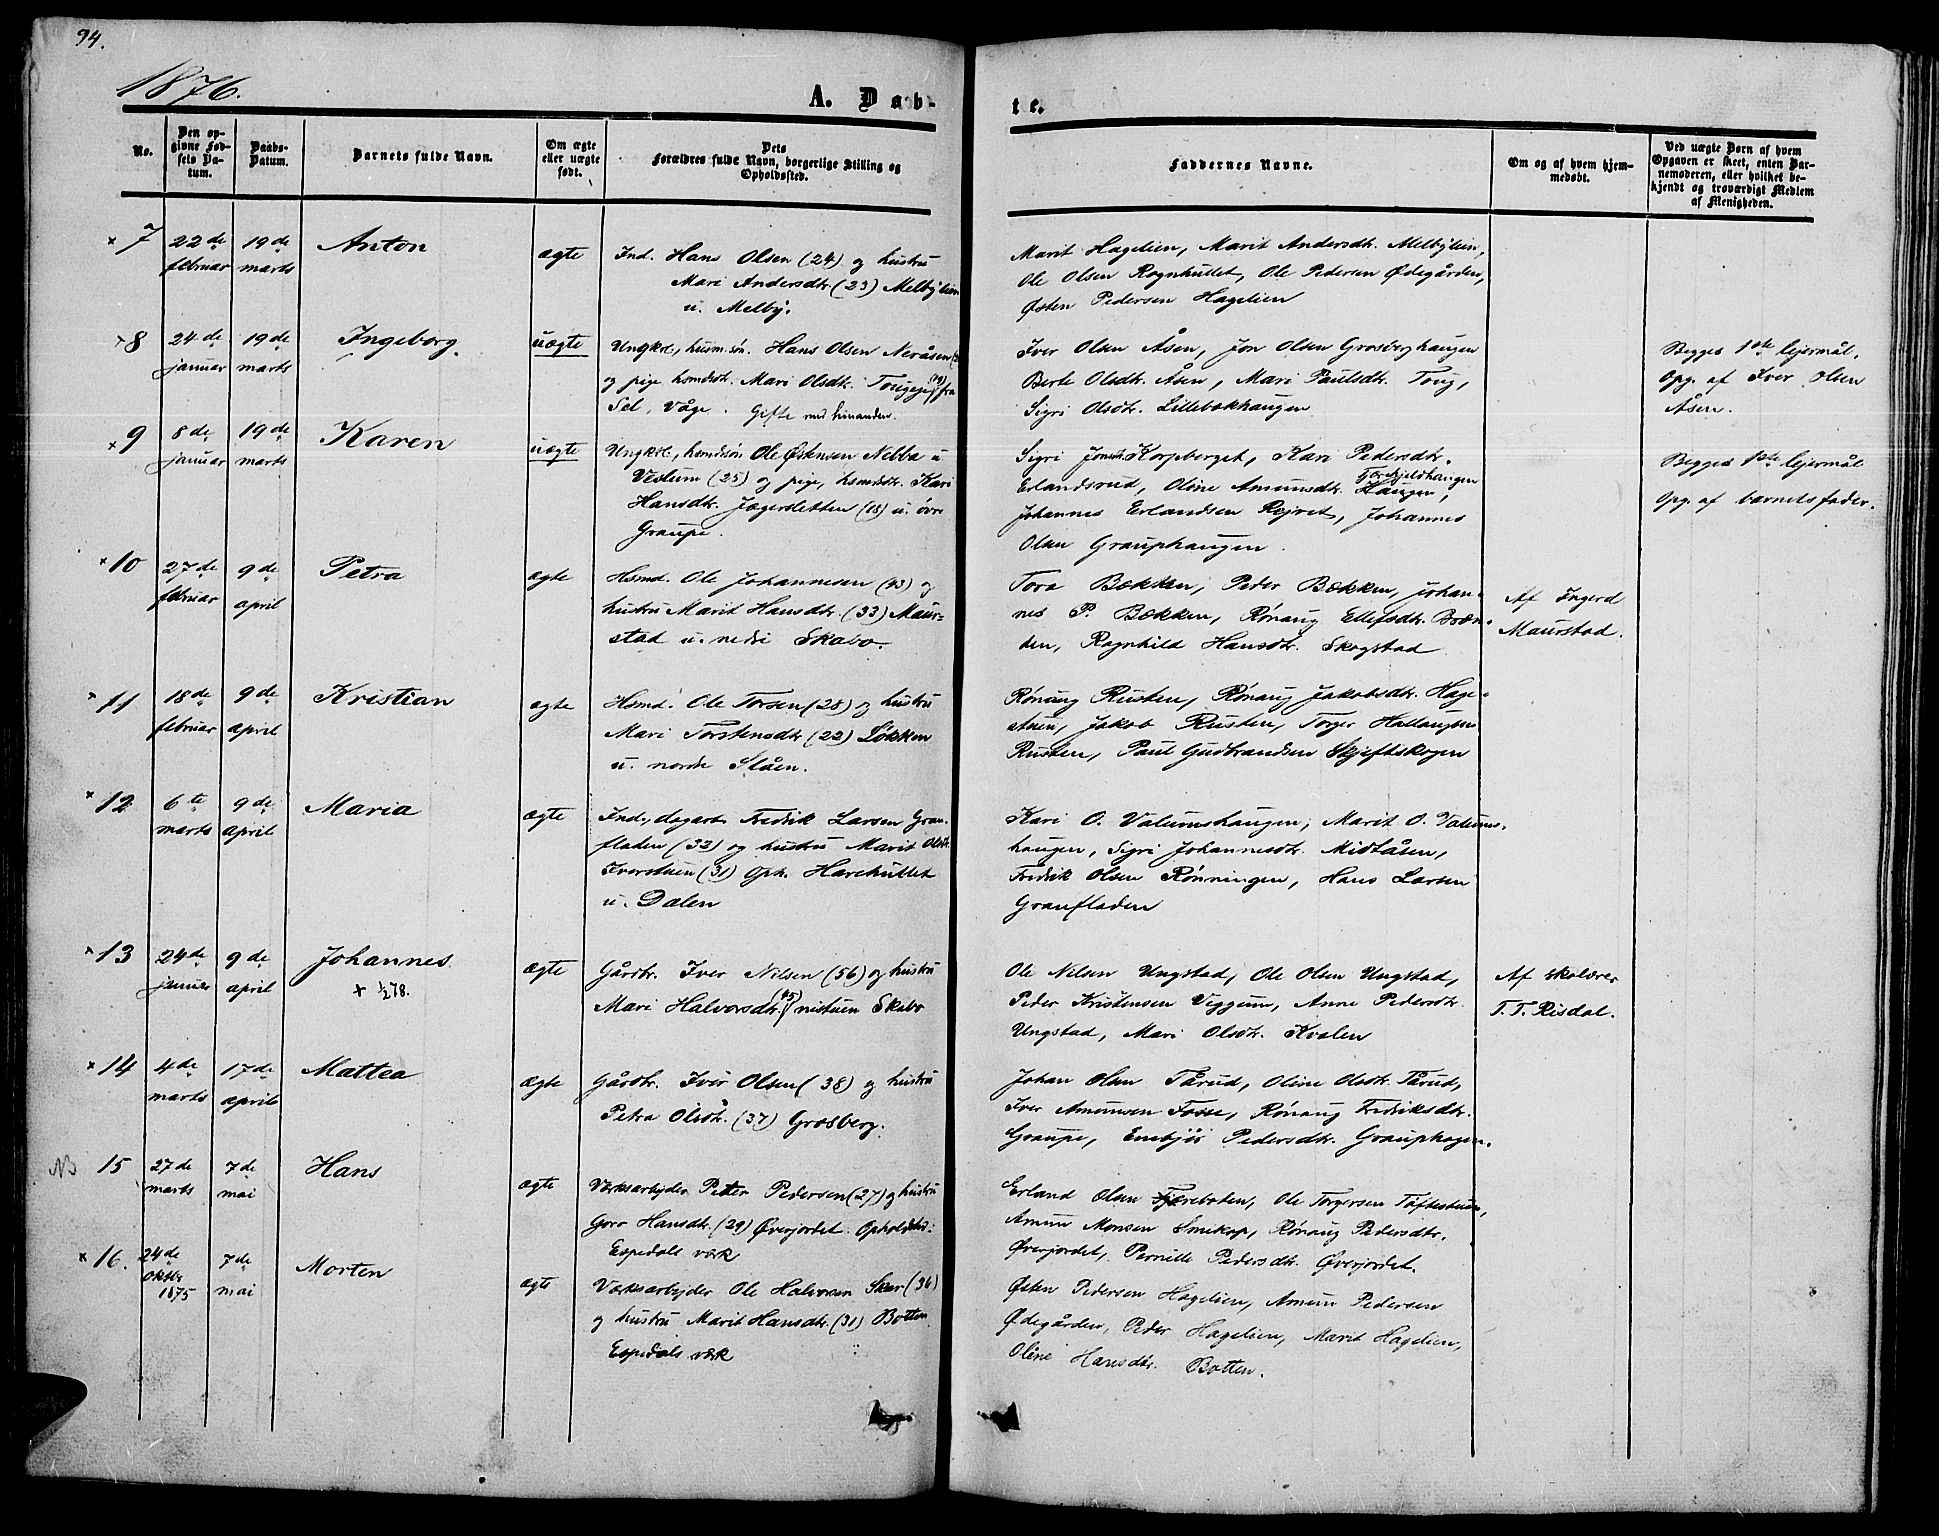 94.
1876.
A. Døb-
te.
No.
Den op-
givne Fød-
sels Da-
tum.
Daabs-
Datum.
Barnets fulde Navn.
Om ægte
eller uægte
født.
Dets
Forældres fulde Navn, borgerlige Stilling og
Opholdssted.
Faddernes Navne.
Om og af hvem hjem-
medøbt.
Ved uægte Børn af hvem
Opgaven er skeet, enten Bar-
nemoderen, eller hvilket be-
kjendt og troværdigt Medlem
af Menigheden.
× 7
22de
februar
19de
marts
Anton
ægte
Ind. Hans Olsen (24) og hustru
Mari Andersdtr. (23) Melbylien
u. Melby.
Marit Hagelien, Marit Andersdtr. Melbylien,
Ole Olsen Rognhullet, Ole Pedersen Ødegården,
Østen Pedersen Hagelien
× 8
24de
januar
19de
marts
Ingeborg
uægte
Ungkrl., husm.søn. Hans Olsen Neråsen
og pige hsmdsdtr. Mari Olsdtr. (19) fra
Sel, Våge. Gifte med hinanden.
Iver Olsen Åsen, Jon Olsen Grosberghaugen
Berte Olsdtr. Åsen, Mari Paulsdtr. Toug,
Sigri Olsdtr. Lillebakhaugen
Begges 1ste lejermål.
Opg. af Iver Olsen
Åsen.
× 9
8de
januar
19de
marts
Karen
uægte
Ungkrl., hsmdsøn Ole Østensen Nebba u
Veslum (25) og pige, hsmdsdtr. Kari
Hansdtr. Jægersletten (18) u. øvre
Graupe.
Sigri Jonsdtr. Korpberget, Kari Pedersdtr.
Erlandsrud, Oline Amunsdtr. Haugen, Torskjeldhaugen
Johannes Erlandsen Rejret, Johannes
Olsen Grauphaugen.
Begges 1ste lejermål
Opg. af barnets fader.
× 10
27de
februar
9de
april
Petra
ægte
Hsmd. Ole Johannesen (43) og
hustru Marit Hansdtr. (33) Maur-
stad u. nedre Skabo.
Tora Bækken, Peder Bækken, Johan-
nes P. Bækken, Rønaug Ellefsdtr. Bræn-
den, Ragnhild Hansdtr. Skogstad
Af Ingerd
Maurstad.
× 11
18de
februar
9de
april
Kristian
ægte
Hsmd. Ole Torsen (28) og hustru
Mari Torstensdtr. (22) Løkken
u. nordre Slåen.
Rønaug Rusten, Rønaug Jakobsdtr. Hage-
stuen, Jakob Rusten, Torger
Rusten, Paul Gudbrandsen Skjeftskogen
× 12
6te
marts
9de
april
Maria
ægte
Ind., dagarb. Fredrik Larsen Gran-
fladen (32) og hustru Marit Olsdtr.
Iverstuen (31) Oph. Harehullet
u. Dalen
Kari O. Valumshaugen, Marit O. Valums-
haugen, Sigri Johannesdtr. Midtåsen,
Fredrik Olsen Rønningen, Hans Larsen
Granfladen
× 13
24de
januar
9de
april
Johannes.
+ 1/2 78.
ægte
Gårdbr. Iver Nilsen (56) og hustru
Mari Halvorsdtr. (45) nistuen Skabo
Ole Nilsen Ungstad, Ole Olsen Ungstad,
Peder Kristensen Viggum, Anne Pedersdtr.
Ungstad, Mari Olsdtr. Kvalen
Af skolærer
T. T. Risdal.
× 14
4de
marts
17de
april
Mattea
ægte
Gårdbr. Iver Olsen (38) og hustru
Petra Olsdtr. (37) Grosberg.
Johan Olsen Tårud, Oline Olsdtr. Tårud,
Iver Amunsen Fosse, Rønaug Fredriksdtr.
Graupe, Embjør Pedersdtr. Grauphagen.
NB 15
27de
marts
7de
mai
Hans
ægte
Værksarbejder Peter Pedersen (27) og hustru
Goro Hansdtr. (29) Øverjordet. Opholdst.:
Espedals værk
Erland Olsen Tjæreboten, Ole Torgersen Toftestuen,
Amun Monsen Smikop, Rønaug Pedersdtr.
Øverjordet, Pernille Pedersdtr. Øverjordet.
× 16.
24de
oktbr.
1875
7de
mai
Morten
ægte
Værksarbejder Ole Halvorsen Skar (36)
og hustru Marit Hansdtr. (31) Botten
Espedals værk
Østen Pedersen Hagelien, Amun Pedersen
Ødegården, Peder Hagelien, Marit Hagelien,
Oline Hansdtr. Botten.